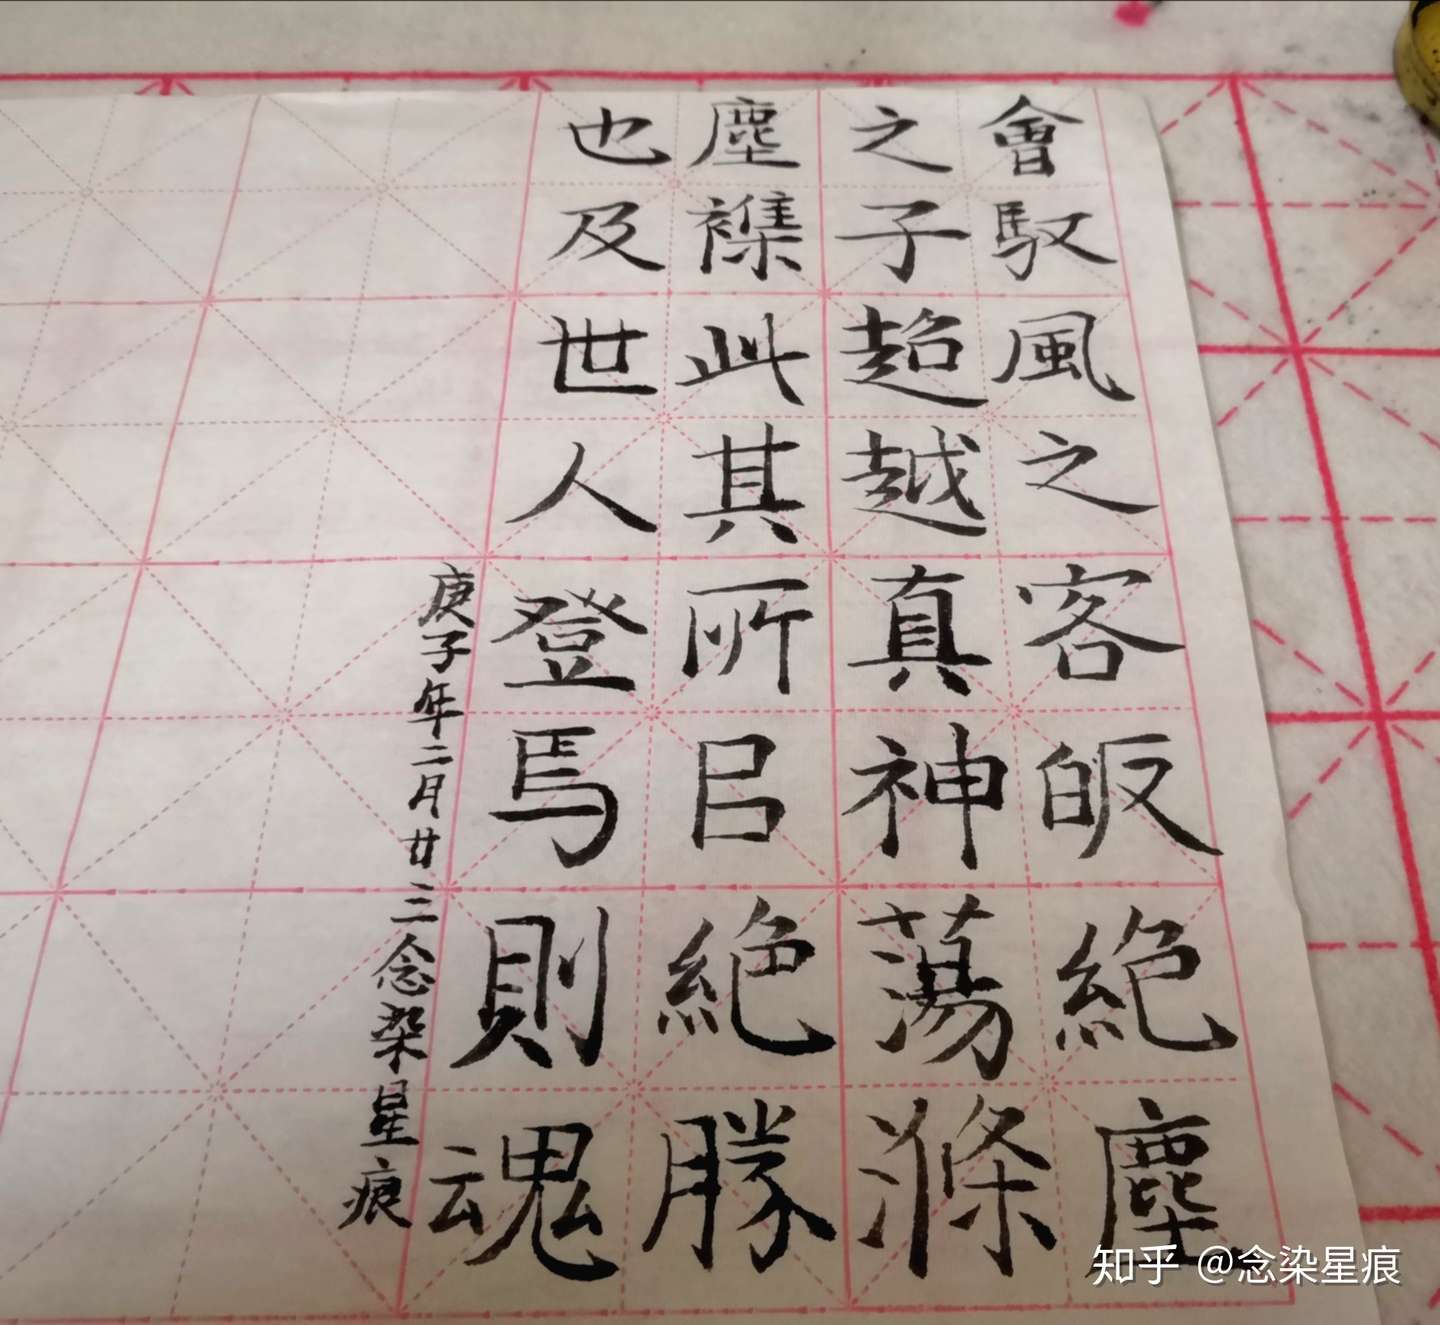 會馭風之客皈絕塵
之子超越真神蕩滌
塵襍此其所㠯絕勝
也及世人登焉則魂
庚子年二月廿三念染星痕
知乎 @念染星痕